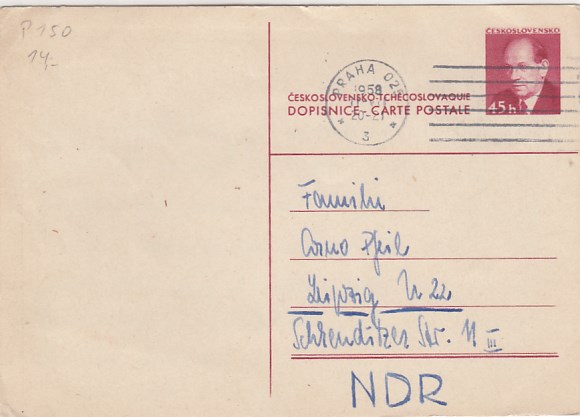 P150
14,-
ČESKOSLOVENSKO
45 h
PRAHA 025
1958
20-21
3
ČESKOSLOVENSKO-TCHÉCOSLOVAQUIE
DOPISNICE - CARTE POSTALE
Familie
Arno Pfeil
Leipzig N 22
Schkeuditzer Str. 11 III
NDR